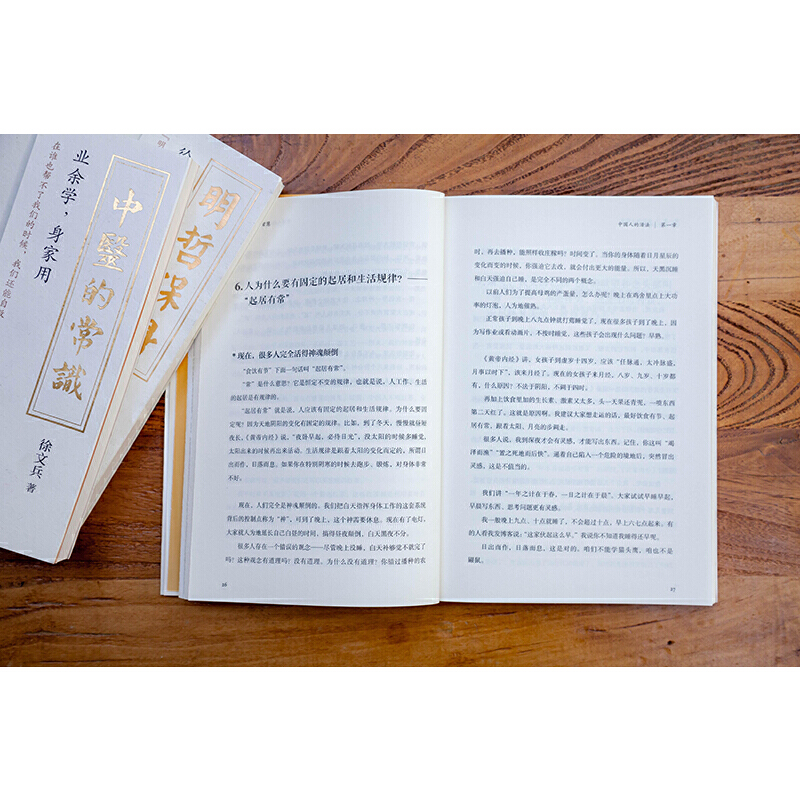 业余学，身家用
在谁也帮不了我们的时候，我们还能自救
中醫的常識
徐文兵 著
明哲保身
6.人为什么要有固定的起居和生活规律？——
“起居有常”
*现在，很多人完全活得神魂颠倒
“食饮有节”下面一句话叫“起居有常”。
“常”是什么意思？它是恒定不变的规律，也就是说，人工作、生活
的起居是有规律的。
“起居有常”就是说，人应该有固定的起居和生活规律。为什么要固
定呢？因为天地阴阳的变化有固定的规律。比如，到了冬天，慢慢就昼短
夜长，《黄帝内经》说，“夜卧早起，必待日光”，没太阳的时候多睡觉，
太阳出来的时候再出来活动。生活规律是跟着太阳的变化而定的，所谓日
出而作，日落而息。如果你在特别阴寒的时候去跑步、锻炼，对身体非常
不好。
现在，人们完全是神魂颠倒的。我们把白天指挥身体工作的这套系统
背后的控制点称为“神”，可到了晚上，这个神需要休息。现在有了电灯，
大家就人为地延长自己白昼的时间，搞得昼夜颠倒，白天黑夜不分。
很多人存在一个错误的观念——尽管晚上没睡，白天补够觉不就完了
吗？这种观念有道理吗？没有道理。为什么没有道理？你错过播种的农
26
中国人的活法 | 第一章
时，再去播种，能照样收庄稼吗？时间变了。当你的身体随着日月星辰的
变化而变的时候，你强迫它去改，就会付出更大的能量。所以，天黑沉睡
和白天强迫自己睡，是完全不同的两个概念。
以前人们为了提高母鸡的产蛋量，怎么办呢？晚上在鸡舍里点上大功
率的灯泡，人为地催熟。
正常孩子到晚上八九点钟就打荒睡觉了，现在很多孩子到了晚上，因
为写作业或看动画片，不按时睡觉，这些孩子会出现什么问题？早熟。
《黄帝内经》讲，女孩子到虚岁十四岁，应该“任脉通，太冲脉盛，
月事以时下”，该来月经了。现在的女孩子来月经，八岁、九岁、十岁都
有，什么原因？不法于阴阳，不调于四时。
再加上饮食里加的生长素、激素又太多，头一天菜还青呢，一喷东西
第二天红了，这就是原因啊。我建议大家想走运的话，最好饮食有节、起
居有常，跟着太阳、月亮的步调走。
很多人说，我到深夜才会有灵感，才能写出东西。记住，你这叫“竭
泽而渔”“置之死地而后快”。逼着自己陷入一个危险的境地后，突然冒出
灵感，这是不值当的。
我们讲“一年之计在于春，一日之计在于晨”。大家试试早睡早起，
早晨写东西、思考问题更有灵感。
我一般晚上九点、十点就睡了，不会超过十点，早上六点起来。有
的人看我发博客说：“这家伙起这么早。”我说你不知道我睡得还早呢。
日出而作，日落而息，这是对的。咱们不能学猫头鹰，咱也不是
鼹鼠。
27